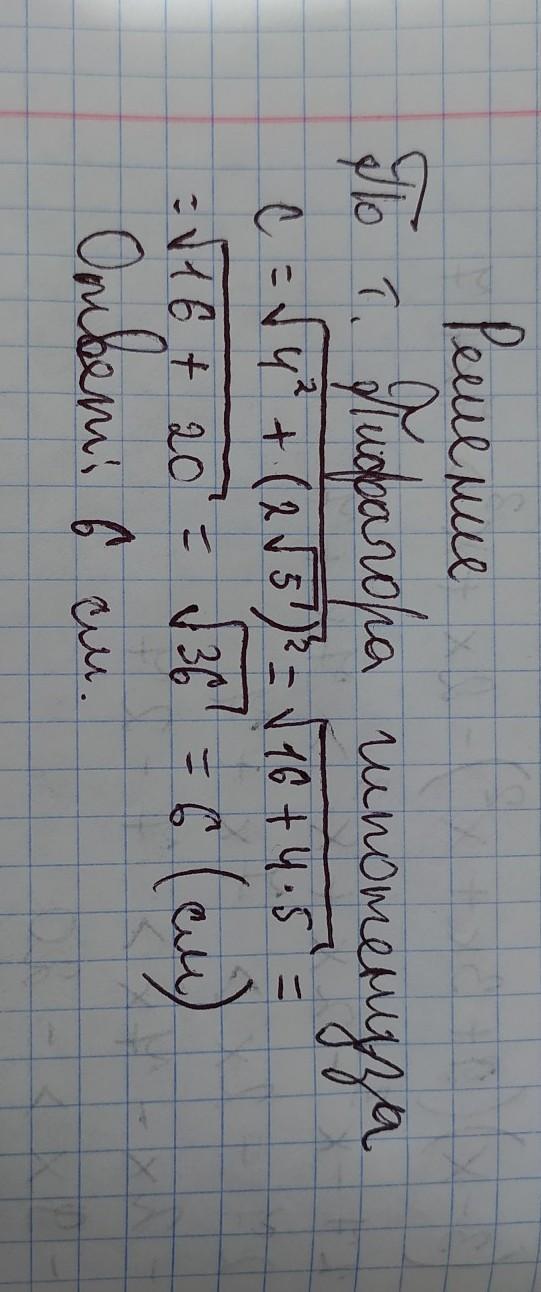 Решение
По т. Пифагора гипотенуза
c = √4² + (2√5)² = √16 + 4·5 =
= √16 + 20 = √36 = 6 (см)
Ответ: 6 см.